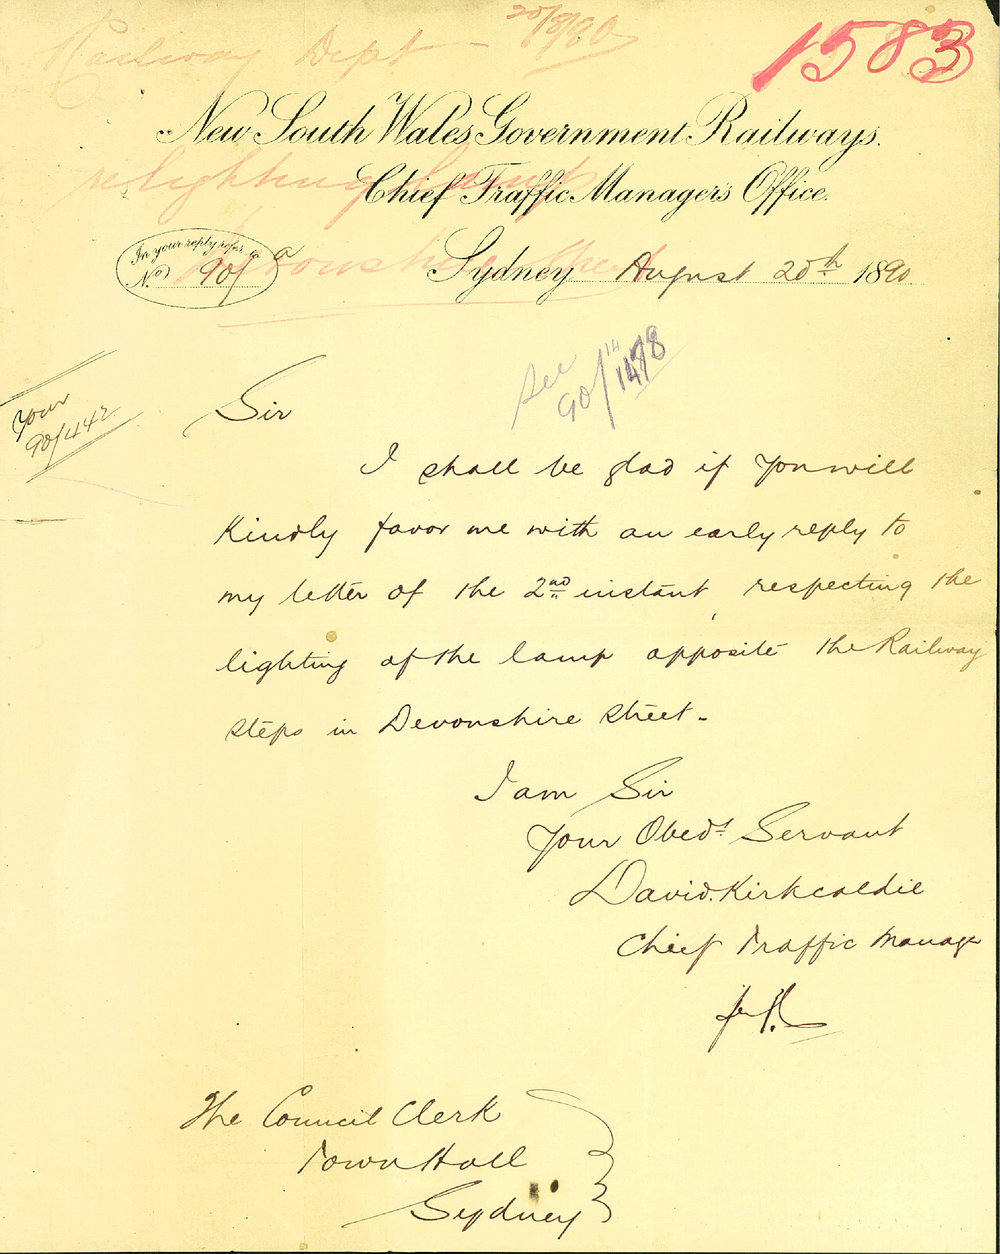 Railway Dept - 20/8/90
1583
New South Wales Government Railways.
relighting Lamp
Chief Traffic Manager's Office.
Devonshire Street
In your reply refer to
No. 90/
Sydney August 20th 1890
See
90/1478
Your
90/442
Sir
I shall be glad if you will
kindly favor me with an early reply to
my letter of the 2nd instant, respecting the
lighting of the lamp opposite the Railway
steps in Devonshire Street.
I am Sir
Your Obedt Servant
David Kirkcaldie
Chief Traffic Manager
The Council Clerk
Town Hall
Sydney